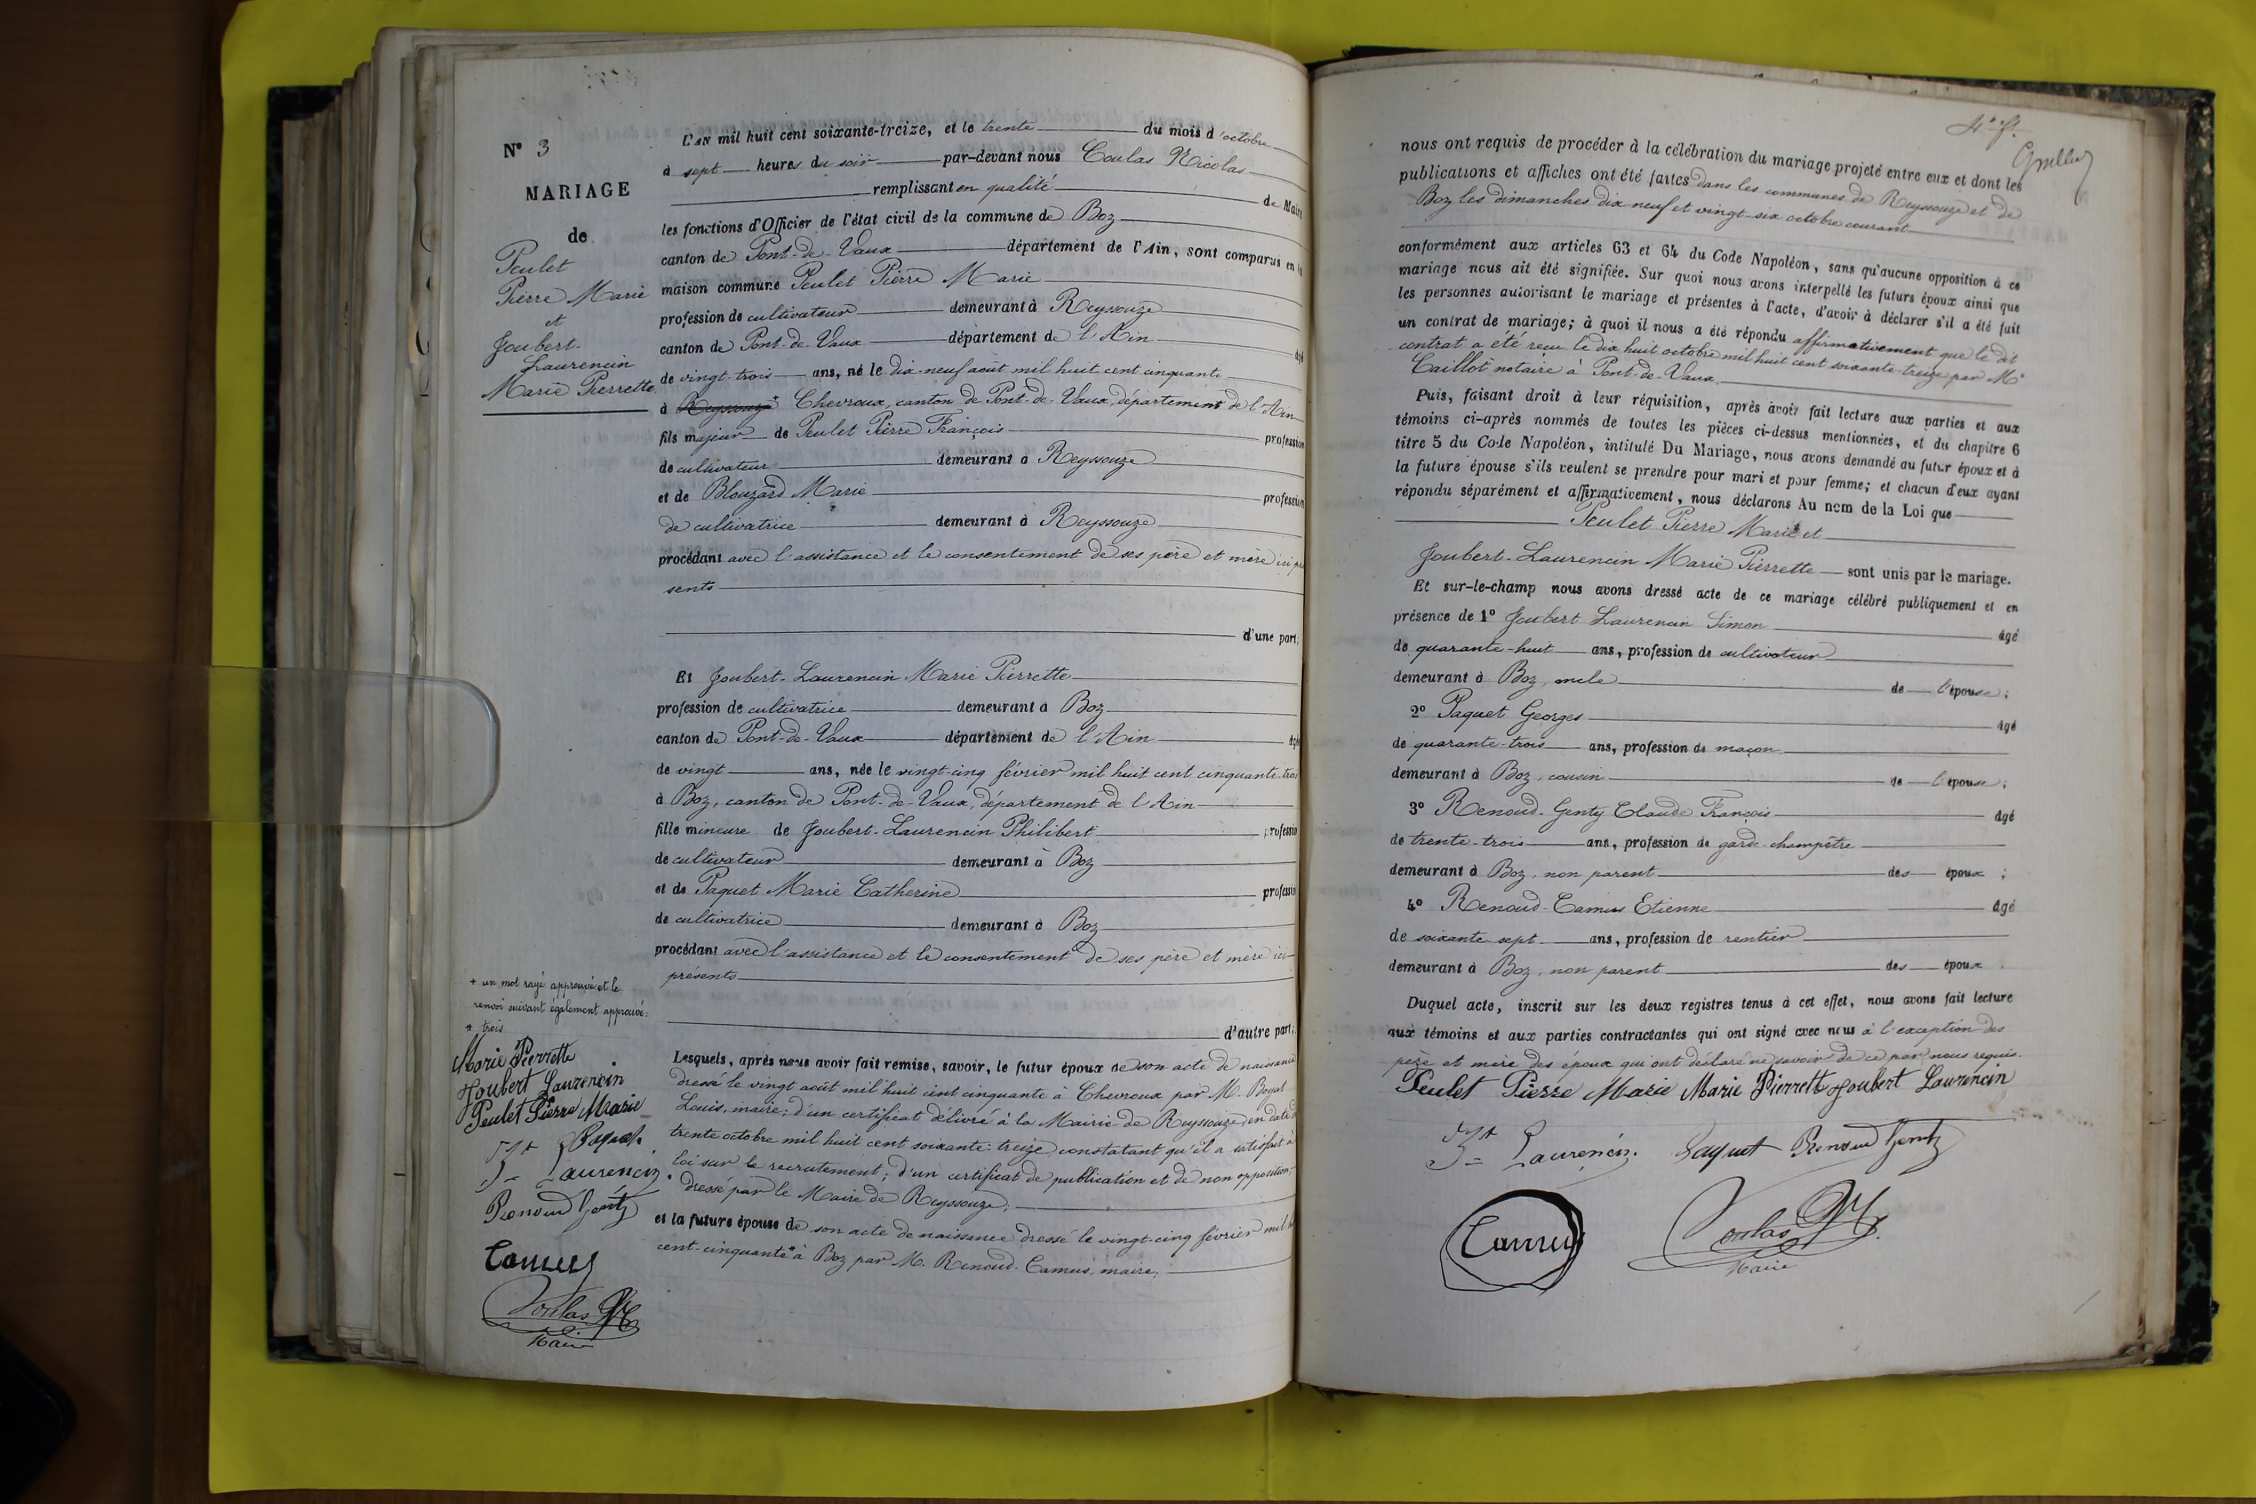 N° 3
MARIAGE
de
Peulet
Pierre Marie
et
Joubert-
Laurencin
Marie Pierrette
L'AN mil huit cent soixante-treize, et le trente du mois d'octobre
à sept heures du soir par-devant nous Coulas Nicolas
remplissant en qualité de Maire
les fonctions d'Officier de l'état civil de la commune de Boz
canton de Pont-de-Vaux département de l'Ain, sont comparus en la
maison commune Peulet Pierre Marie
profession de cultivateur demeurant à Reyssouze
canton de Pont-de-Vaux département de l'Ain âgé
de vingt-trois ans, né le dix-neuf août mil huit cent cinquante
à Reyssouze* Chevroux, canton de Pont-de-Vaux, département de l'Ain
fils majeur de Peulet Pierre François profession
de cultivateur demeurant à Reyssouze
et de Blouzard Marie profession
de cultivatrice demeurant à Reyssouze
procédant avec l'assistance et le consentement de ses père et mère ici pré
sents
d'une part;
Et Joubert-Laurencin Marie Pierrette
profession de cultivatrice demeurant à Boz
canton de Pont-de-Vaux département de l'Ain âgée
de vingt ans, née le vingt-cinq février mil huit cent cinquante-trois
à Boz, canton de Pont-de-Vaux, département de l'Ain
fille mineure de Joubert-Laurencin Philibert profession
de cultivateur demeurant à Boz
et de Paquet Marie Catherine profession
de cultivatrice demeurant à Boz
procédant avec l'assistance et le consentement de ses père et mère ici
présents
d'autre part;
Lesquels, après nous avoir fait remise, savoir, le futur époux de son acte de naissance
dressé le vingt août mil huit cent cinquante à Chevroux par M. Boyat
Louis, maire; d'un certificat délivré à la Mairie de Reyssouze en date du
trente octobre mil huit cent soixante-treize constatant qu'il a satisfait à la
loi sur le recrutement; d'un certificat de publication et de non opposition
dressé par le Maire de Reyssouze;
et la future épouse de son acte de naissance dressé le vingt-cinq février mil huit
cent-cinquante* à Boz par M. Renoud-Camus, maire;
+ un mot rayé approuvé et le
renvoi suivant également approuvé:
* trois
Marie Pierrette
Joubert Laurencin
Peulet Pierre Marie
Jt Paquet
Laurencin
Renoud Genty
Camus
Coulas
Maire
nous ont requis de procéder à la célébration du mariage projeté entre eux et dont les
publications et affiches ont été faites dans les communes de Reyssouze et de
Boz les dimanches dix-neuf et vingt-six octobre courant
conformément aux articles 63 et 64 du Code Napoléon, sans qu'aucune opposition à ce
mariage nous ait été signifiée. Sur quoi nous avons interpellé les futurs époux ainsi que
les personnes autorisant le mariage et présentes à l'acte, d'avoir à déclarer s'il a été fait
un contrat de mariage; à quoi il nous a été répondu affirmativement que le dit
contrat a été reçu le dix huit octobre mil huit cent soixante-treize par Me
Caillot notaire à Pont-de-Vaux
Puis, faisant droit à leur réquisition, après avoir fait lecture aux parties et aux
témoins ci-après nommés de toutes les pièces ci-dessus mentionnées, et du chapitre 6
titre 5 du Code Napoléon, intitulé Du Mariage, nous avons demandé au futur époux et à
la future épouse s'ils veulent se prendre pour mari et pour femme; et chacun d'eux ayant
répondu séparément et affirmativement, nous déclarons Au nom de la Loi que
Peulet Pierre Marie et
Joubert-Laurencin Marie Pierrette sont unis par le mariage.
Et sur-le-champ nous avons dressé acte de ce mariage célébré publiquement et en
présence de 1° Joubert Laurencin Simon âgé
de quarante-huit ans, profession de cultivateur
demeurant à Boz, oncle de l'épouse;
2° Paquet Georges âgé
de quarante-trois ans, profession de maçon
demeurant à Boz, cousin de l'épouse;
3° Renoud-Genty Claude François âgé
de trente-trois ans, profession de garde-champêtre
demeurant à Boz, non parent des époux;
4° Renoud-Camus Etienne âgé
de soixante sept ans, profession de rentier
demeurant à Boz, non parent des époux.
Duquel acte, inscrit sur les deux registres tenus à cet effet, nous avons fait lecture
aux témoins et aux parties contractantes qui ont signé avec nous à l'exception des
père et mère des époux qui ont déclaré ne savoir de ce par nous requis.
Peulet Pierre Marie Marie Pierrette Joubert Laurencin
Jt Laurencin. Paquet Renoud Genty
Camus Coulas
Maire